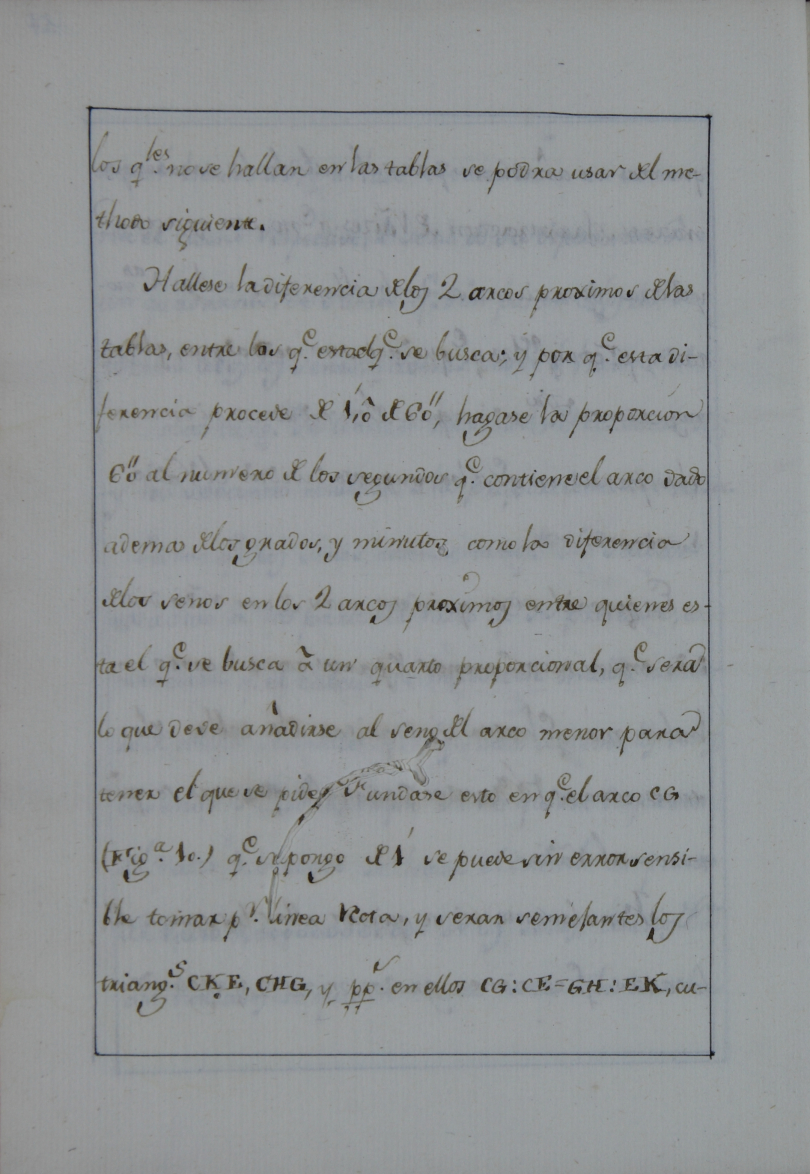 los q.les no se hallan en las tablas se podra usar del me-
thodo siguiente.
Hallese la diferencia de los 2 arcos proximos de las
tablas, entre los q.e esta el q.e se busca; y por q.e esta di-
ferencia procede de 1', ô de 60'', hagase la proporcion
60'' al numero de los segundos q.e contiene el arco dado
adema de los grados, y minutos como la diferencia
de los senos en los 2 arcos proximos entre quienes es-
ta el q.e se busca à un quarto proporcional, q.e sera
lo que deve añadirse al seno del arco menor para
tener el que se pide, Fundase esto en q.e el arco CG
(Fig.a 10.) q.e supongo de 1' se puede sin error sensi-
ble tomar p.r linea recta, y seran semejantes los
triang.s CKE, CHG, y pp.s en ellos CG:CE=GH:EK, cu-